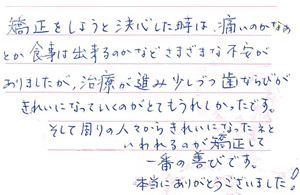 矯正をしようと決心した時は、痛いのかなぁ
とか食事は出来るのかなどさまざまな不安が
ありましたが、治療が進み少しづつ歯ならびが
きれいになっていくのがとてもうれしかったです。
そして周りの人々からきれいになったネと
いわれるのが矯正して
一番の喜びです。
本当にありがとうございました!